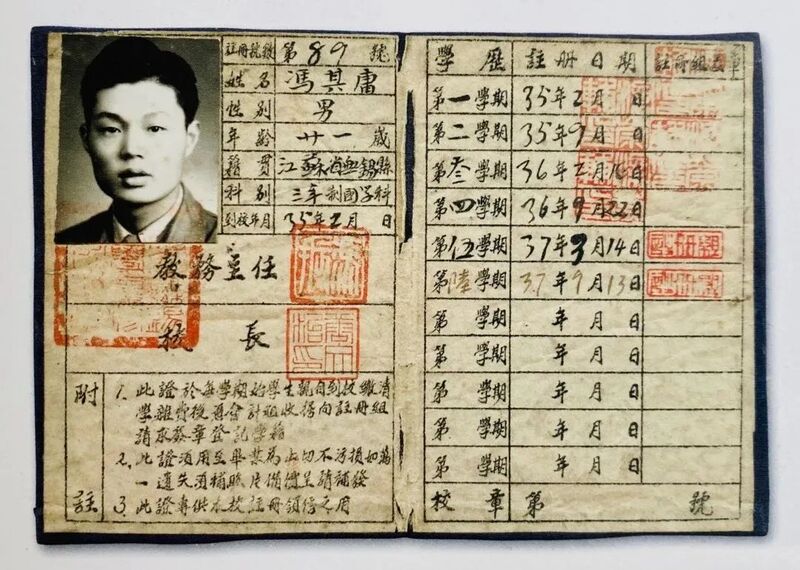 註冊號數 第89號
姓名 馮其庸
性別 男
年齡 廿一歲
籍貫 江蘇省無錫縣
科別 三年制國学科
到校年月 35年2月 日
教務主任
校長
附註
1. 此證於每學期始學生親自到校繳清
學雜費後再會計組收據向註冊組
請求簽章登記學籍
2. 此證須用至畢業為止切不污損如萬
一遺失須補照片備價呈請補發
3. 此證專供本校註冊領信之用
學歷 註册日期 註冊組蓋章
第一學期 35年2月 日
第二學期 35年9月 日
第叁學期 36年2月16日
第四學期 36年9月22日
第伍學期 37年3月14日
第陸學期 37年9月13日
第 學期 年 月 日
第 學期 年 月 日
第 學期 年 月 日
第 學期 年 月 日
第 學期 年 月 日
校章 第 號